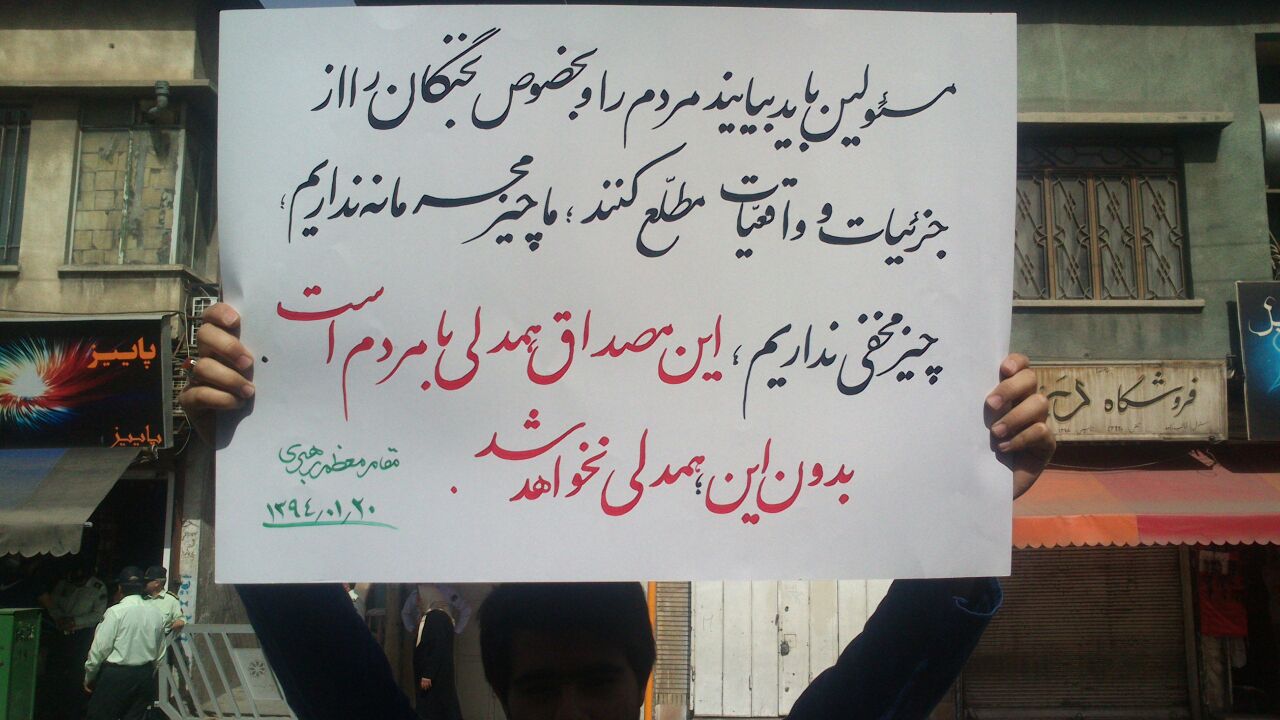 مسئولین باید بیایند مردم را و بخصوص نخبگان را از
جزئیات و واقعیّات مطلّع کنند؛ ما چیز محرمانه نداریم؛
چیز مخفی نداریم؛ این مصداق همدلی با مردم است.
بدون این، همدلی نخواهد شد.
مقام معظم رهبری
۱۳۹٤/۰۱/۲۰
پاییز
پاییز
فروشگاه